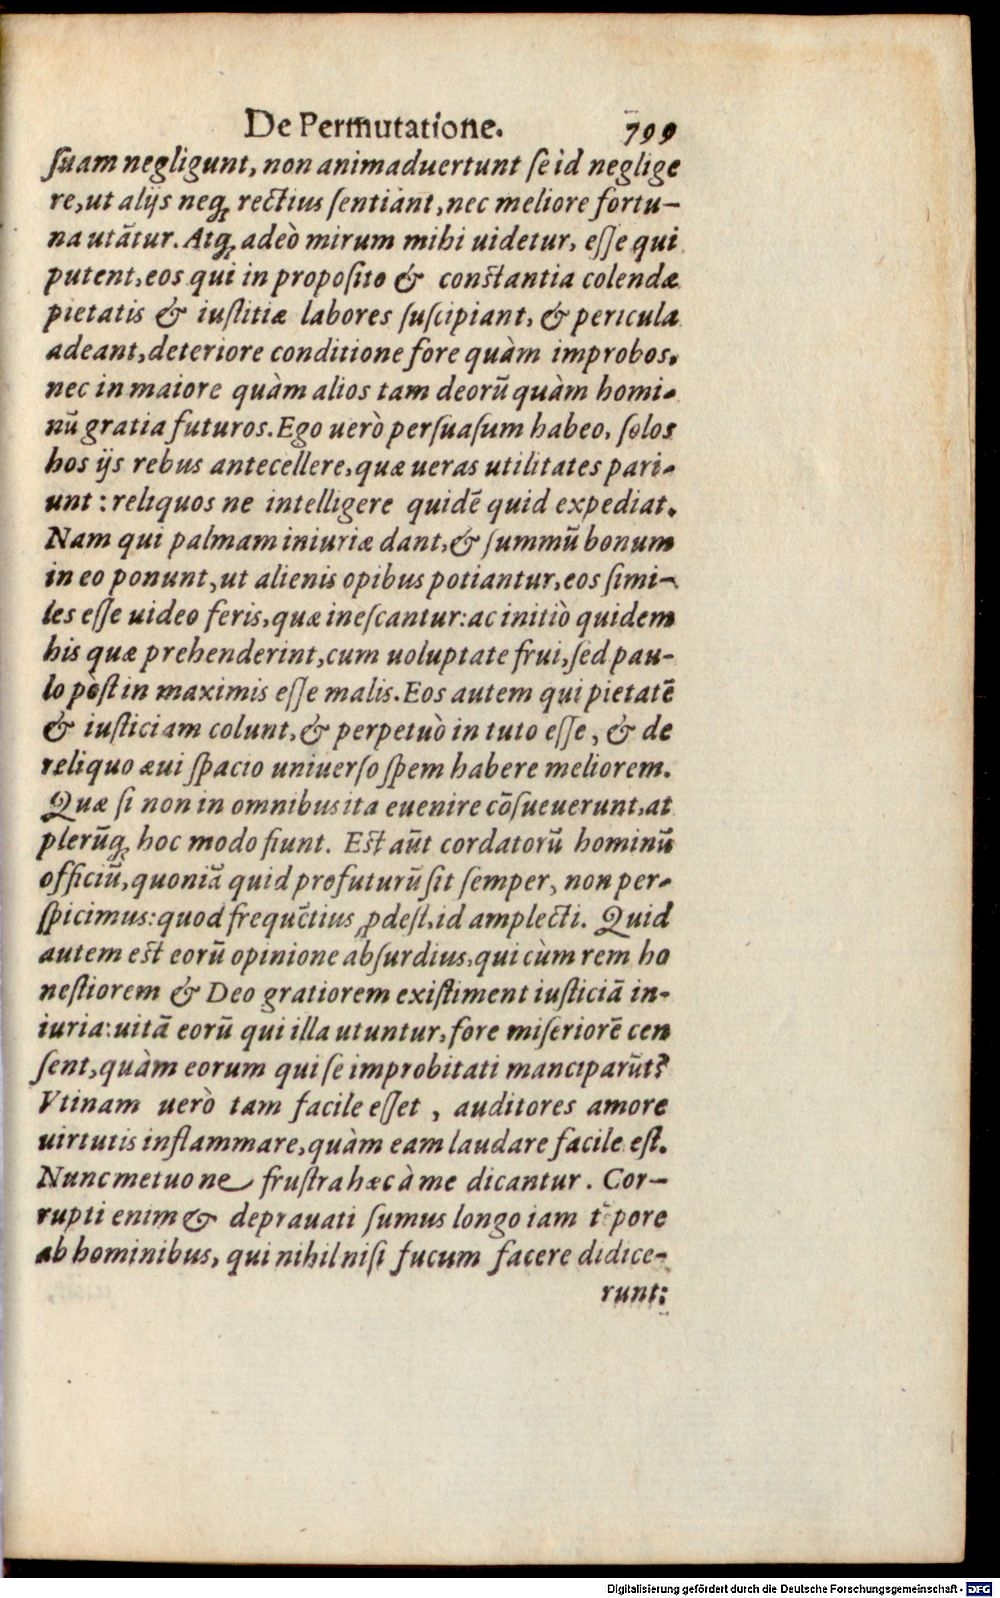 De Permutatione. 799
ſuam negligunt, non animaduertunt ſe id neglige
re, ut alijs neqꝫ rectius ſentiant, nec meliore fortu-
na utãtur. Atqꝫ adeò mirum mihi uidetur, eſſe qui
putent, eos qui in propoſito & constantia colendæ
pietatis & iuſtitiæ labores ſuſcipiant, & pericula
adeant, deteriore conditione fore quàm improbos,
nec in maiore quàm alios tam deorũ quàm homi-
nũ gratia futuros. Ego uerò perſuaſum habeo, ſolos
hos ijs rebus antecellere, quæ ueras utilitates pari-
unt: reliquos ne intelligere quidẽ quid expediat.
Nam qui palmam iniuriæ dant, & ſummũ bonum
in eo ponunt, ut alienis opibus potiantur, eos ſimi-
les eſſe uideo feris, quæ ineſcantur: ac initiò quidem
his quæ prehenderint, cum uoluptate frui, ſed pau-
lo pòſt in maximis eſſe malis. Eos autem qui pietatẽ
& iuſticiam colunt, & perpetuò in tuto eſſe, & de
reliquo æui ſpacio uniuerſo ſpem habere meliorem.
Quæ ſi non in omnibus ita euenire cõſueuerunt, at
plerũqꝫ hoc modo fiunt. Est aũt cordatorũ hominũ
officiũ, quoniã quid profuturũ ſit ſemper, non per-
ſpicimus: quod frequẽtius ꝓdeſt, id amplecti. Quid
autem est eorũ opinione abſurdius, qui cùm rem ho
neſtiorem & Deo gratiorem exiſtiment iuſticiã in-
iuria: uitã eorũ qui illa utuntur, fore miſeriorẽ cen
ſent, quàm eorum qui ſe improbitati manciparũt?
Vtinam uerò tam facile eſſet, auditores amore
uirtutis inflammare, quàm eam laudare facile eſt.
Nunc metuo ne fruſtra hæc à me dicantur. Cor-
rupti enim & deprauati ſumus longo iam tẽpore
ab hominibus, qui nihil niſi fucum facere didice-
runt:
Digitalisierung gefördert durch die Deutsche Forschungsgemeinschaft - DFG